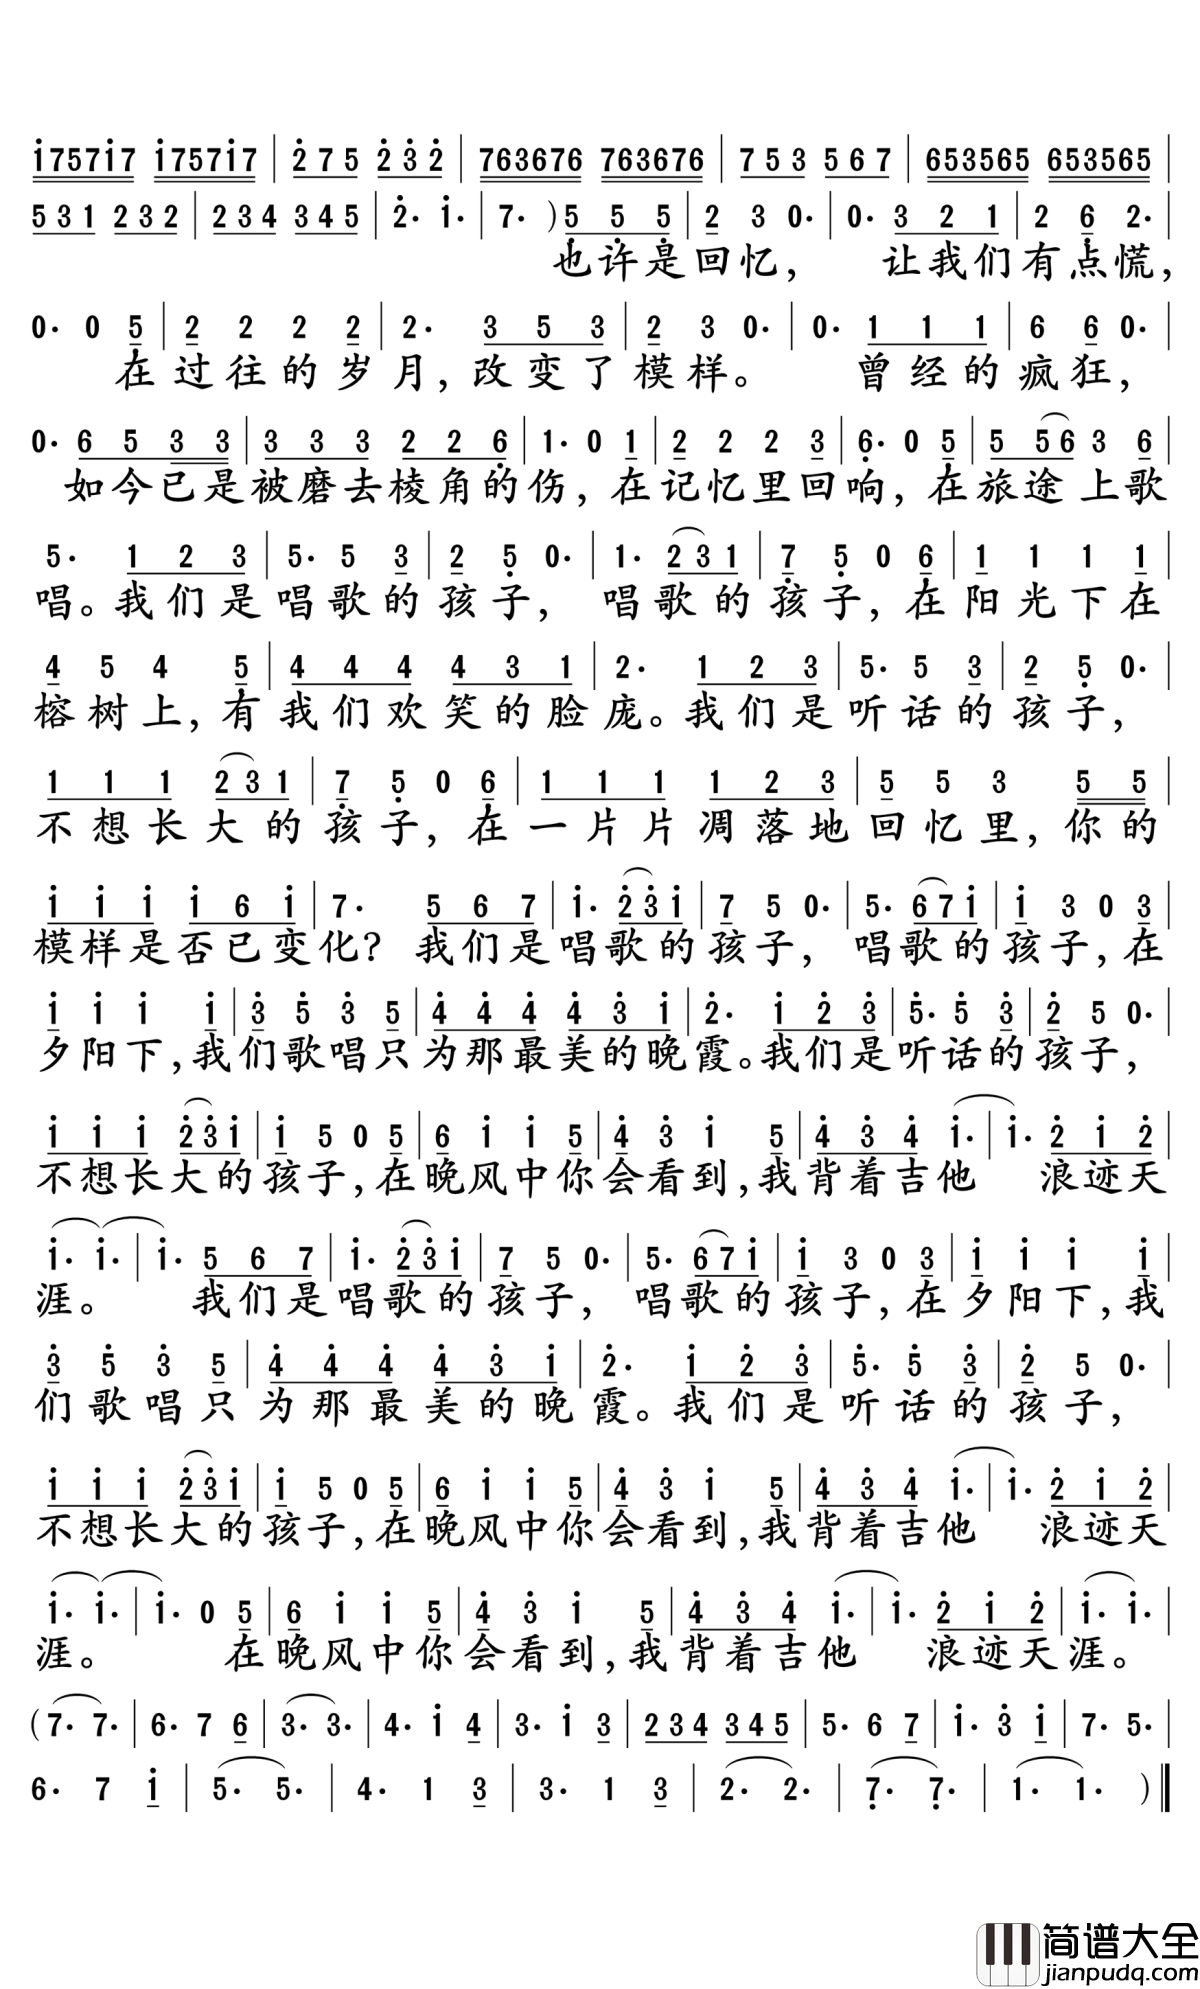 i75757i7 i75757i7 | 275 232 | 763676 763676 | 753 567 | 653565 653565 |
531 232 | 234 345 | 2· i· | 7· ) 5 5 5 | 2 3 0· | 0· 3 2 1 | 2 6 2· |
也许是回忆， 让我们有点慌，
0· 0 5 | 2 2 2 2 | 2· 3 5 3 | 2 3 0· | 0· 1 1 1 | 6 6 0· |
在过往的岁月，改变了模样。 曾经的疯狂，
0· 6 5 3 3 | 3 3 3 2 2 6 | 1· 0 1 | 2 2 2 3 | 6· 0 5 | 5 5 6 3 6 |
如今已是被磨去棱角的伤，在记忆里回响，在旅途上歌
5· 1 2 3 | 5· 5 3 | 2 5 0· | 1· 2 3 1 | 7 5 0 6 | 1 1 1 1 |
唱。我们是唱歌的孩子， 唱歌的孩子，在阳光下在
4 5 4 5 | 4 4 4 4 3 1 | 2· 1 2 3 | 5· 5 3 | 2 5 0· |
榕树上，有我们欢笑的脸庞。我们是听话的孩子，
1 1 1 2 3 1 | 7 5 0 6 | 1 1 1 1 2 3 | 5 5 3 5 5 |
不想长大的孩子，在一片片凋落地回忆里，你的
i i i i 6 i | 7· 5 6 7 | i· 2 3 i | 7 5 0· | 5· 6 7 i | i 3 0 3 |
模样是否已变化？ 我们是唱歌的孩子， 唱歌的孩子，在
i i i i | 3 5 3 5 | 4 4 4 4 3 i | 2· i 2 3 | 5· 5 3 | 2 5 0· |
夕阳下，我们歌唱只为那最美的晚霞。我们是听话的孩子，
i i i 2 3 i | i 5 0 5 | 6 i i 5 | 4 3 i 5 | 4 3 4 i· | i· 2 i 2 |
不想长大的孩子，在晚风中你会看到，我背着吉他 浪迹天
i· i· | i· 5 6 7 | i· 2 3 i | 7 5 0· | 5· 6 7 i | i 3 0 3 | i i i i |
涯。 我们是唱歌的孩子， 唱歌的孩子，在夕阳下，我
3 5 3 5 | 4 4 4 4 3 i | 2· i 2 3 | 5· 5 3 | 2 5 0· |
们歌唱只为那最美的晚霞。我们是听话的孩子，
i i i 2 3 i | i 5 0 5 | 6 i i 5 | 4 3 i 5 | 4 3 4 i· | i· 2 i 2 |
不想长大的孩子，在晚风中你会看到，我背着吉他 浪迹天
i· i· | i· 0 5 | 6 i i 5 | 4 3 i 5 | 4 3 4 i· | i· 2 i 2 | i· i· |
涯。 在晚风中你会看到，我背着吉他 浪迹天涯。
( 7· 7· | 6· 7 6 | 3· 3· | 4· i 4 | 3· i 3 | 234 345 | 5· 6 7 | i· 3 i | 7· 5· |
6· 7 i | 5· 5· | 4· 1 3 | 3· 1 3 | 2· 2· | 7· 7· | 1· 1· ) ‖
简谱大全
jianpudq.com